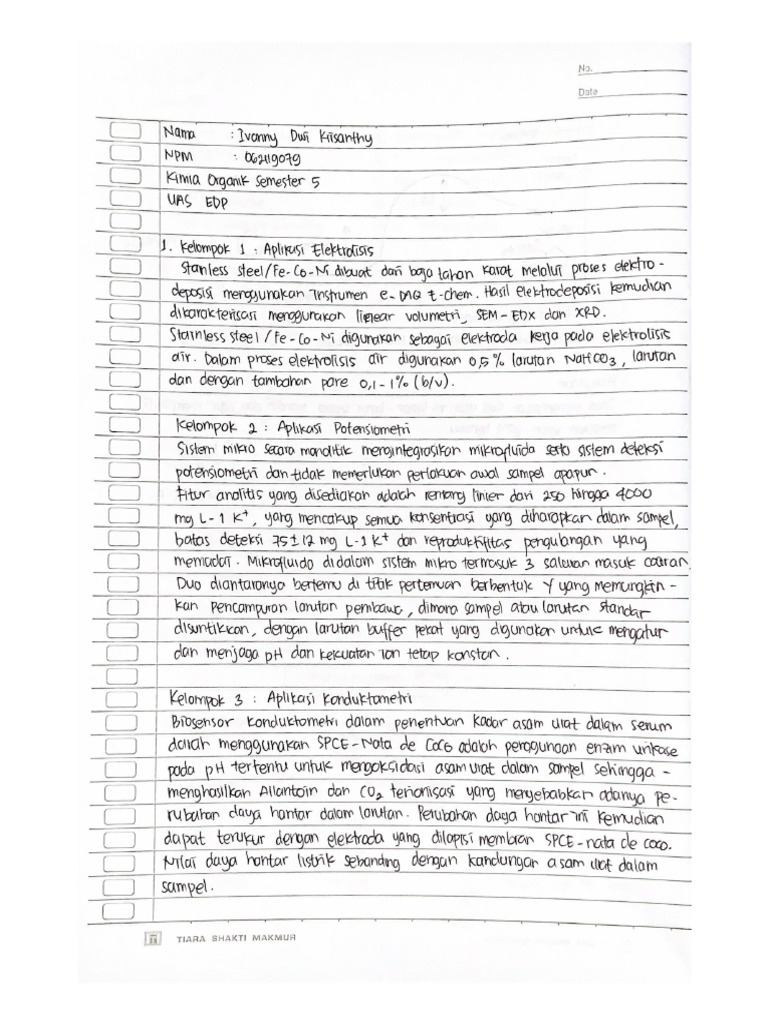 No.
Date
Nama : Ivonny Dwi Krisanthy
NPM : 062119079
Kimia Organik Semester 5
UAS EDP
1. Kelompok 1 : Aplikasi Elektrolisis
Stainless steel/Fe-Co-Ni dibuat dari baja tahan karat melalui proses elektro-
deposisi menggunakan Instrumen e-DAQ t-chem. Hasil elektrodeposisi kemudian
dikarakterisasi menggunakan linear volumetri, SEM-EDX dan XRD.
Stainless steel/Fe-Co-Ni digunakan sebagai elektroda kerja pada elektrolisis
air. Dalam proses elektrolisis air digunakan 0,5% larutan NaHCO3, larutan
dan dengan tambahan pare 0,1-1% (b/v).
Kelompok 2 : Aplikasi Potensiometri
Sistem mikro secara monolitik mengintegrasikan mikrofluida serta sistem deteksi
potensiometri dan tidak memerlukan perlakuan awal sampel apapun.
Fitur analitis yang disediakan adalah rentang linier dari 250 hingga 4000
mg L-1 K+, yang mencakup semua konsentrasi yang diharapkan dalam sampel,
batas deteksi 75±12 mg L-1 K+ dan reproduktifitas pengulangan yang
memadai. Mikrofluida didalam sistem mikro termasuk 3 saluran masuk cairan.
Dua diantaranya bertemu di titik pertemuan berbentuk Y yang memungkin-
kan pencampuran larutan pembawa, dimana sampel atau larutan standar
disuntikkan, dengan larutan buffer pekat yang digunakan untuk mengatur
dan menjaga pH dan kekuatan ion tetap konstan.
Kelompok 3 : Aplikasi Konduktometri
Biosensor konduktometri dalam penentuan kadar asam urat dalam serum
darah menggunakan SPCE-Nata de Coco adalah penggunaan enzim urikase
pada pH tertentu untuk mengoksidasi asam urat dalam sampel sehingga -
menghasilkan Allantoin dan CO2 terionisasi yang menyebabkan adanya pe-
rubahan daya hantar dalam larutan. Perubahan daya hantar ini kemudian
dapat terukur dengan elektroda yang dilapisi membran SPCE-nata de coco.
Nilai daya hantar listrik sebanding dengan kandungan asam urat dalam
sampel.
TIARA SHAKTI MAKMUR